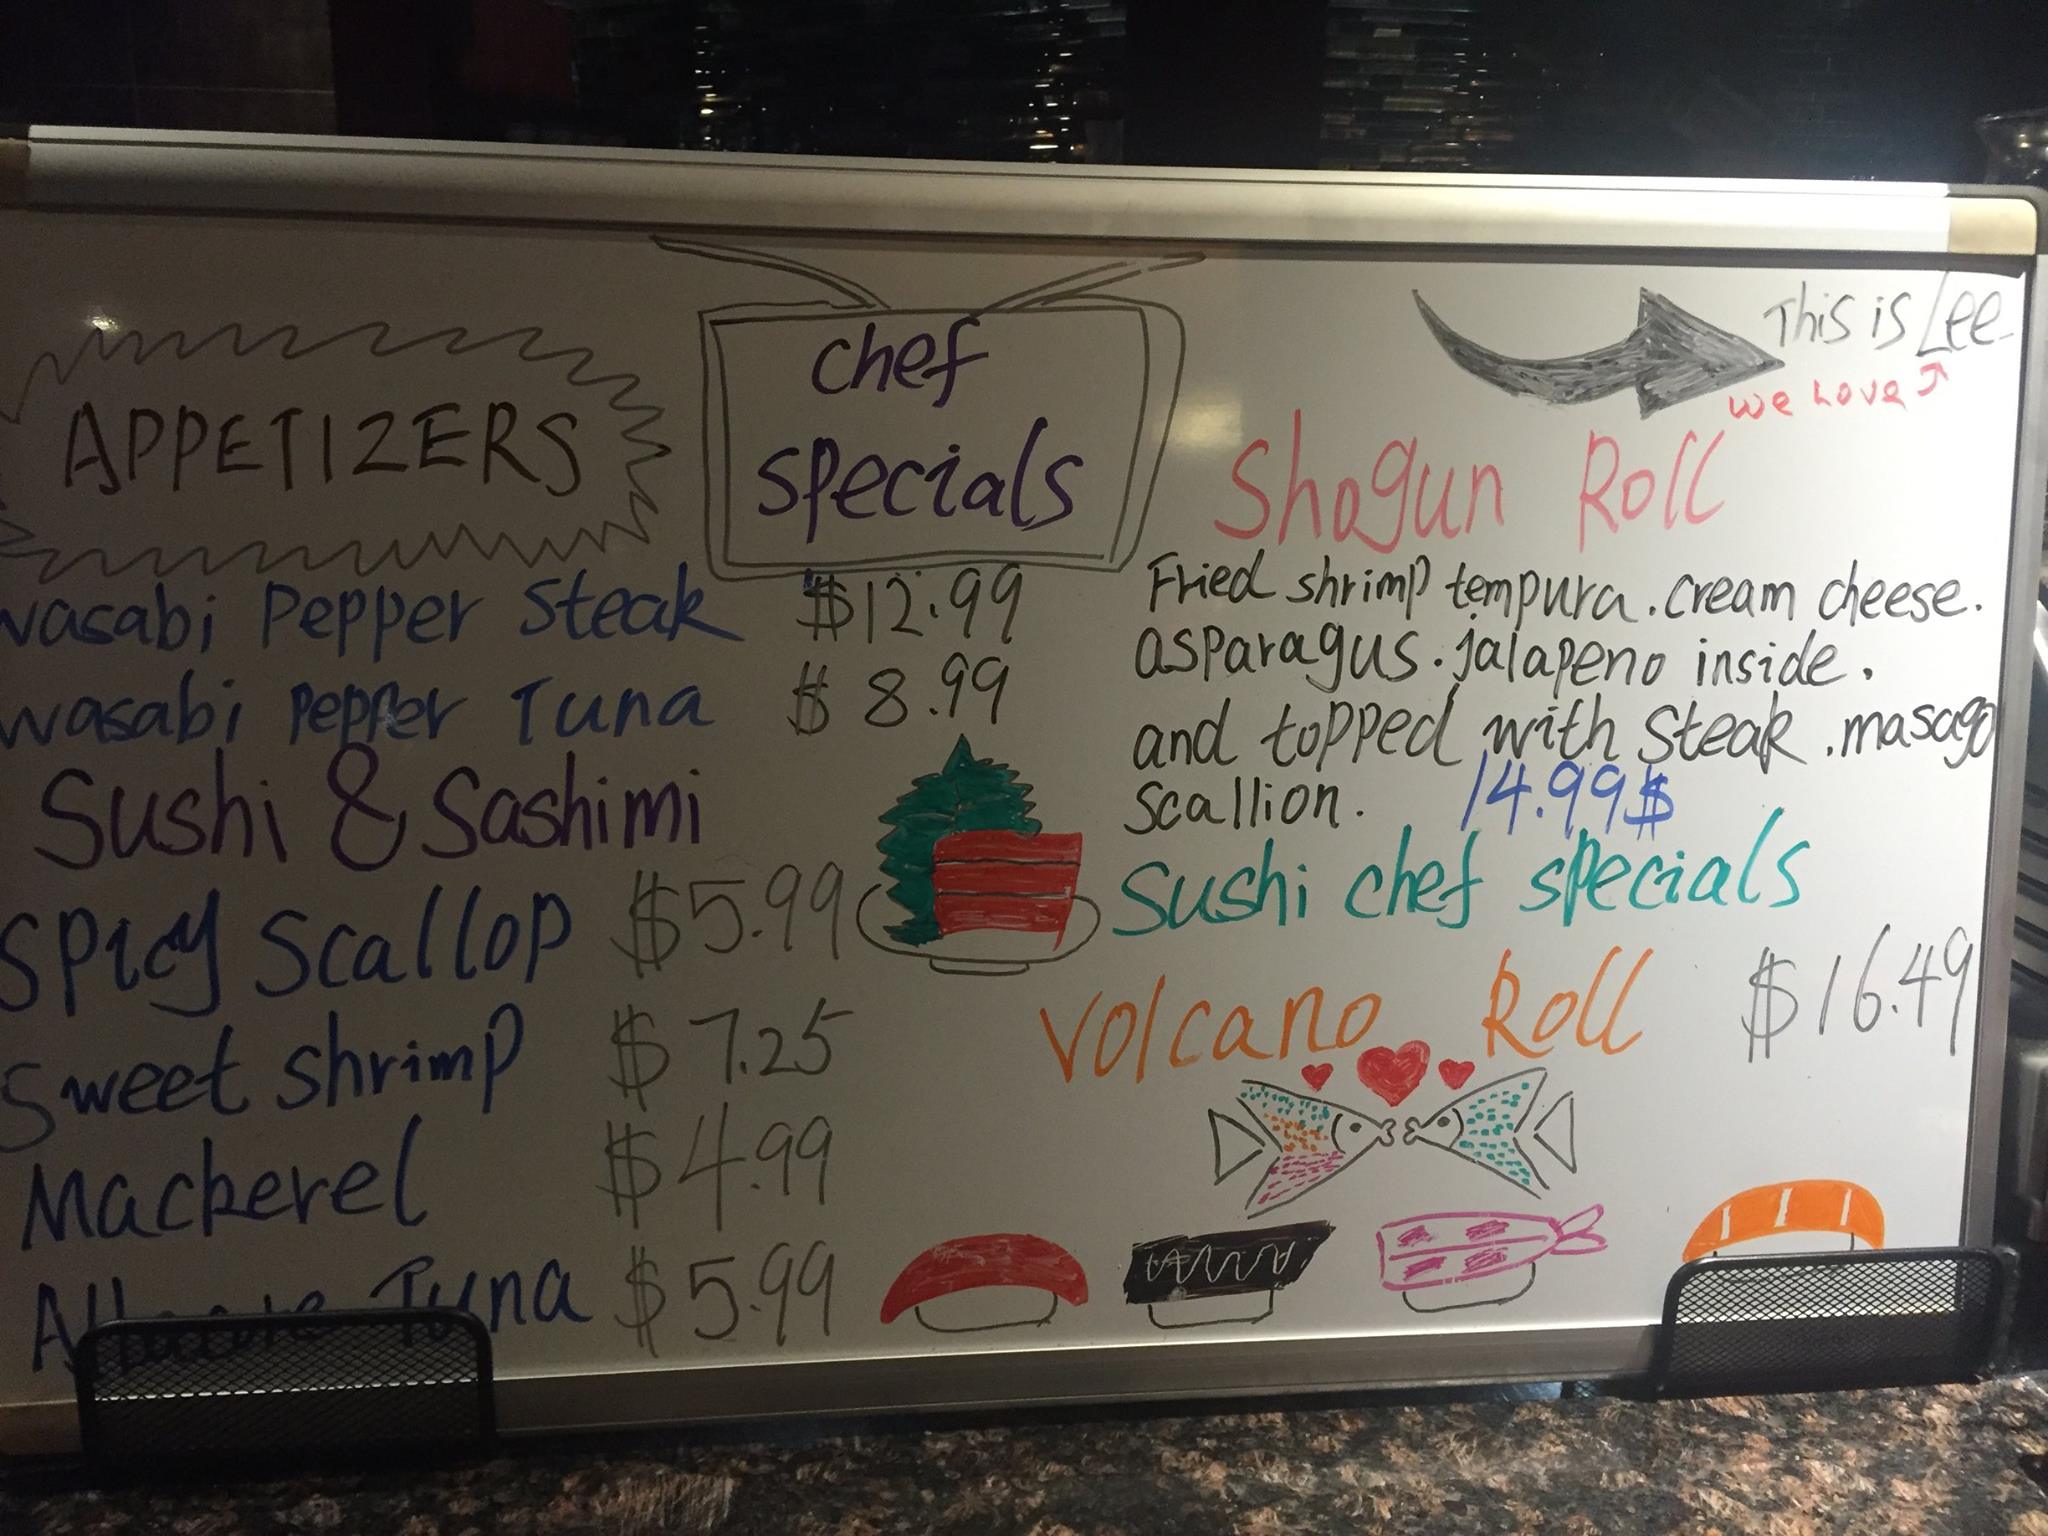 APPETIZERS
wasabi Pepper Steak $12.99
wasabi Pepper Tuna $8.99
Sushi & Sashimi
Spicy Scallop $5.99
Sweet Shrimp $7.25
Mackerel $4.99
Albacore Tuna $5.99
chef
specials
This is Lee
we Love
Shogun Roll
Fried shrimp tempura.cream cheese.
asparagus.jalapeno inside.
and topped with Steak.masago
scallion. 14.99$
Sushi chef specials
Volcano Roll $16.49